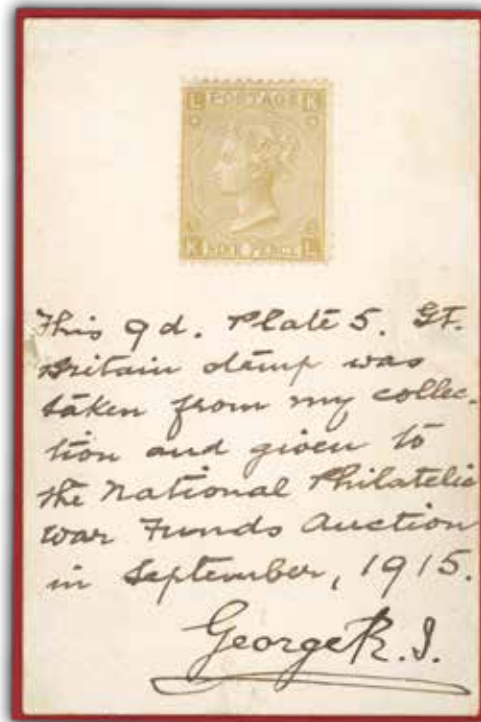 L POSTAGE K
K NINE PENCE L
This 9d. Plate 5. GT.
Britain stamp was
taken from my collec-
tion and given to
the National Philatelic
War Funds Auction
in September, 1915.
George R.I.